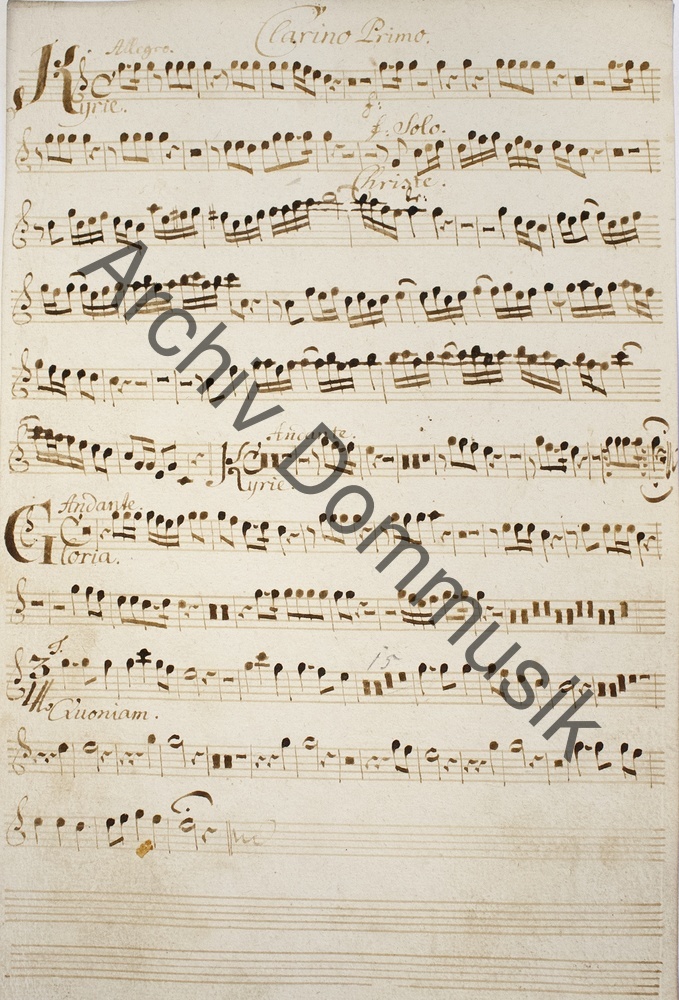 Clarino Primo.
Allegro.
Kyrie.
f: Solo.
Christe.
tr:
Andante.
Kyrie.
Andante.
Gloria.
3
15
Quoniam.
Archiv Dommusik